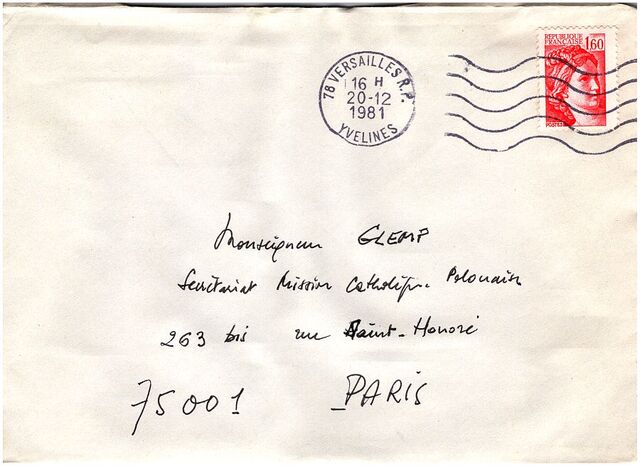 RÉPUBLIQUE
FRANÇAISE 1,60
POSTES
78 VERSAILLES R.P.
16 H
20-12
1981
YVELINES
Monseigneur GLEMP
Secrétariat Mission Catholique Polonaise
263 bis rue Saint-Honoré
75001 PARIS